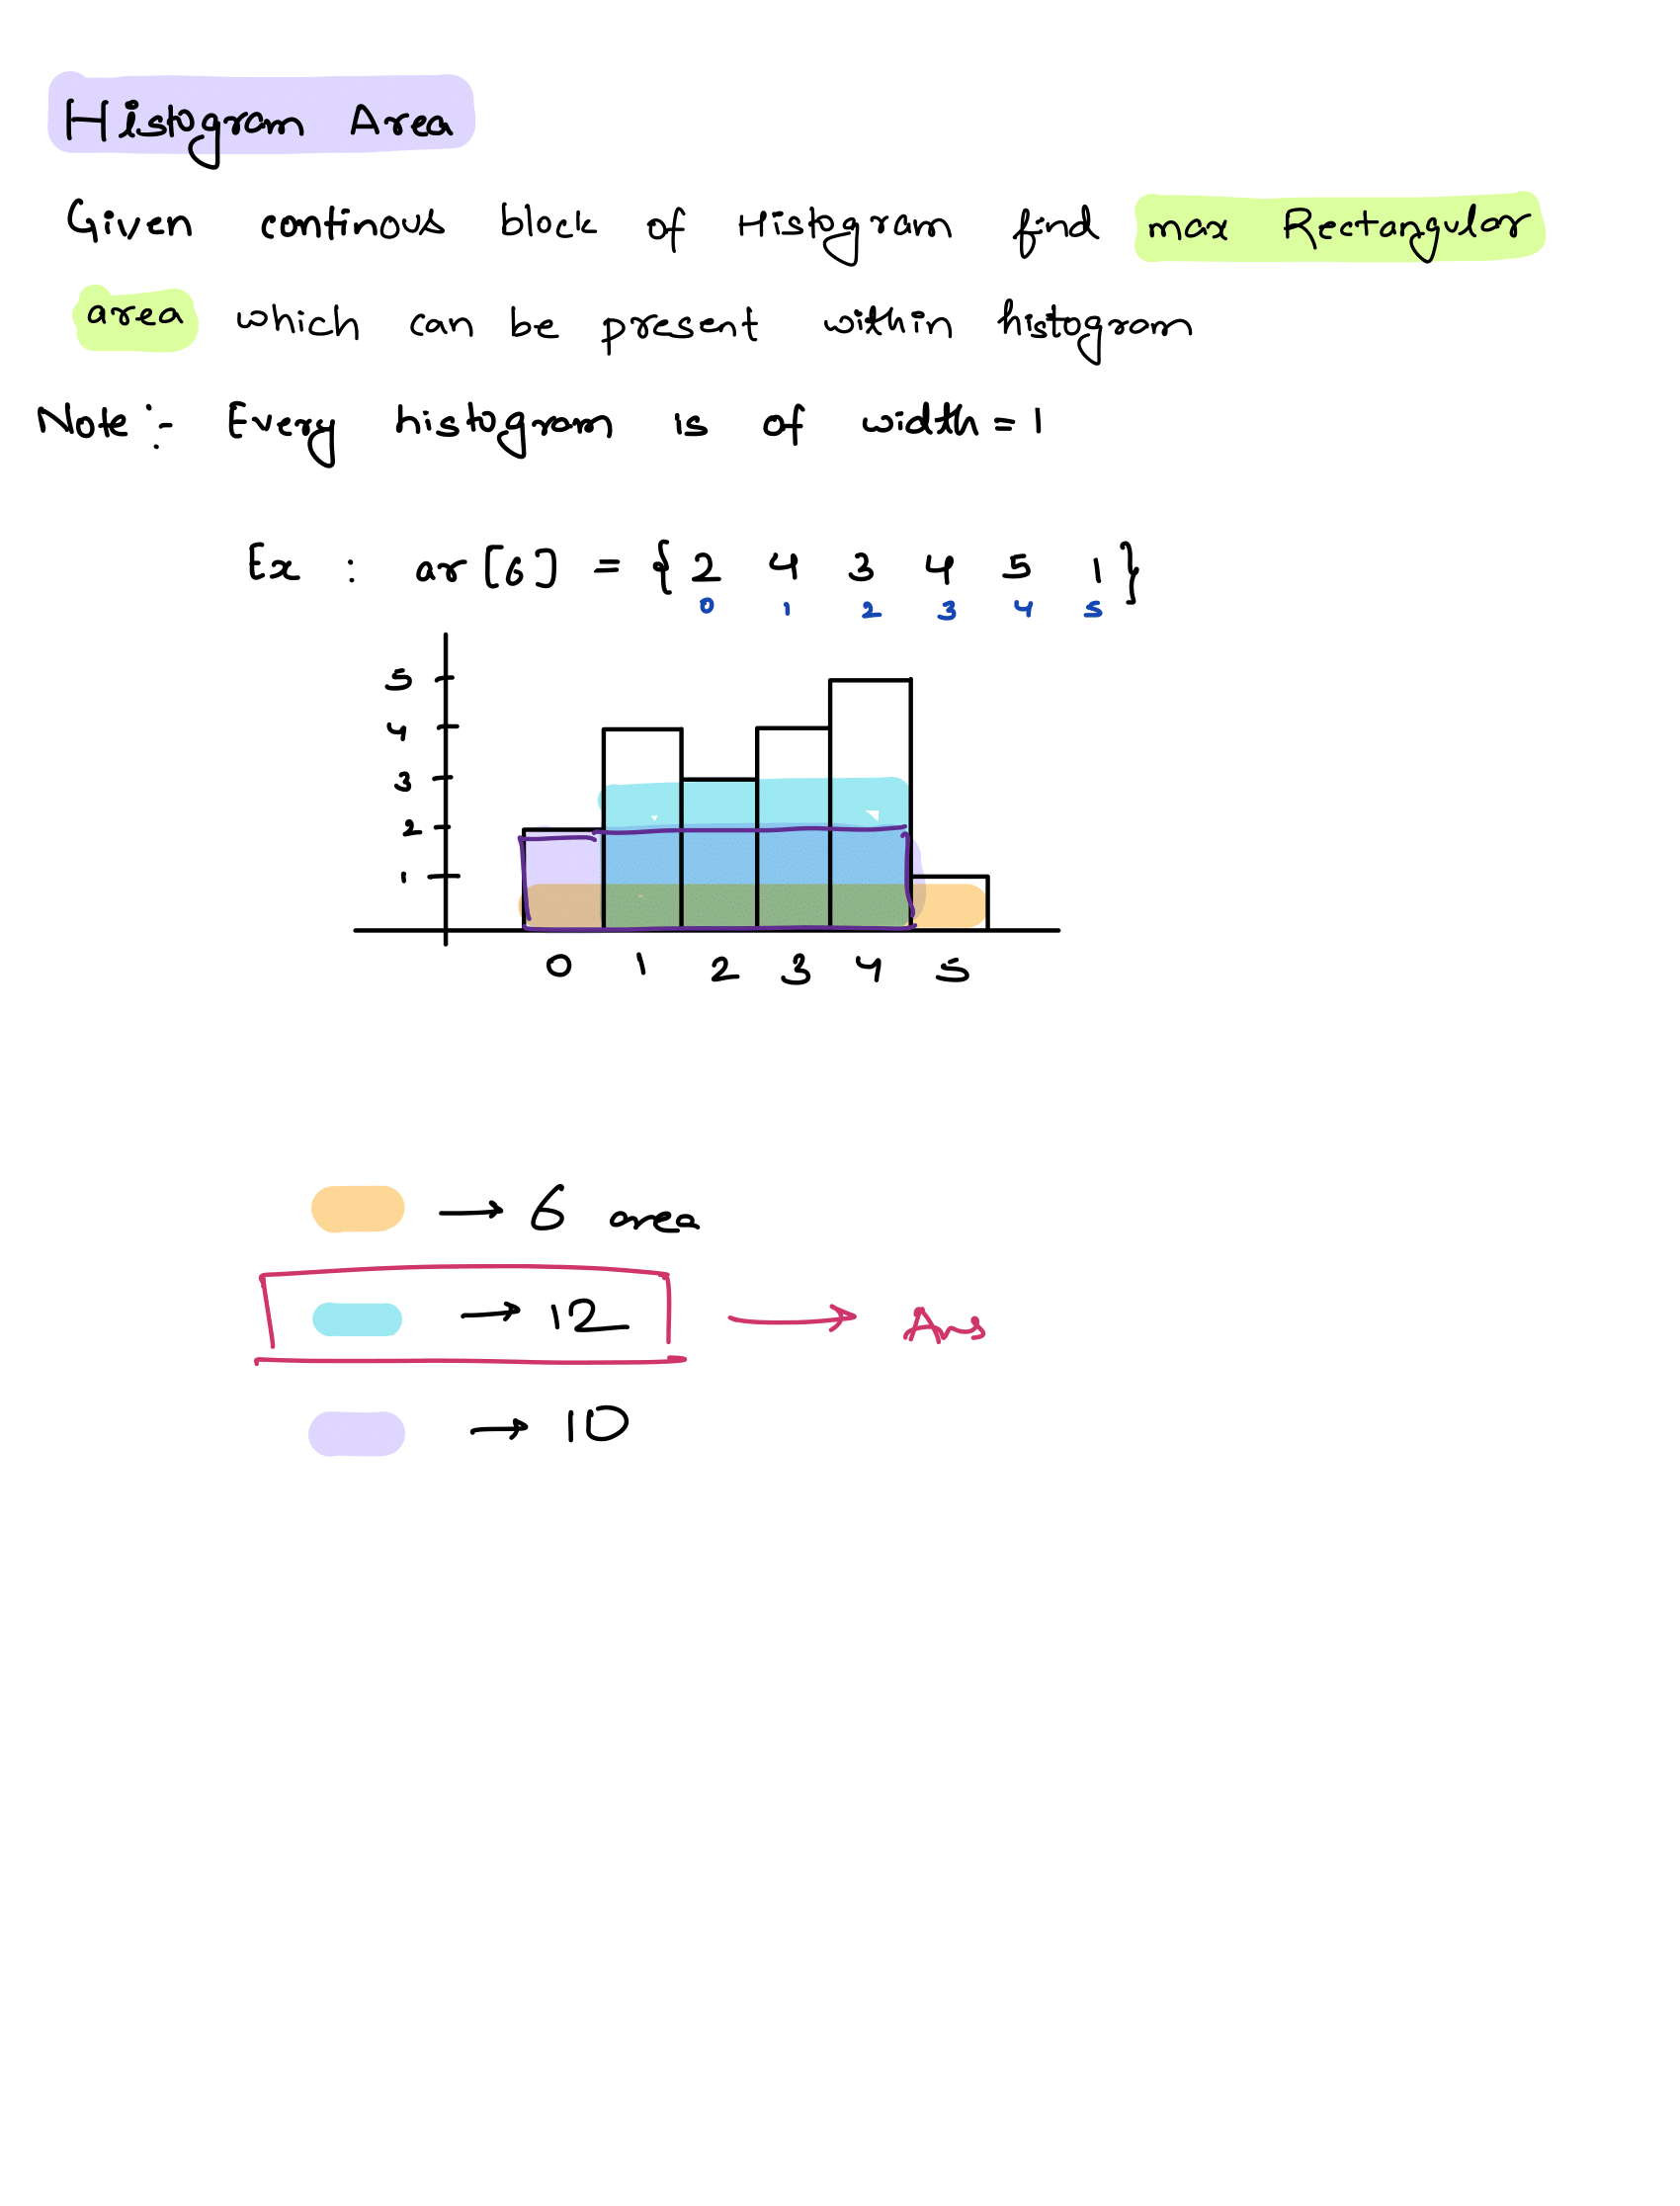 Histogram Area
Given continous block of Histogram find max Rectangular
area which can be present within histogram
Note :- Every histogram is of width = 1
Ex : ar[6] = { 2 4 3 4 5 1 }
0 1 2 3 4 5
5
4
3
2
1
0 1 2 3 4 5
→ 6 area
→ 12 → Ans
→ 10